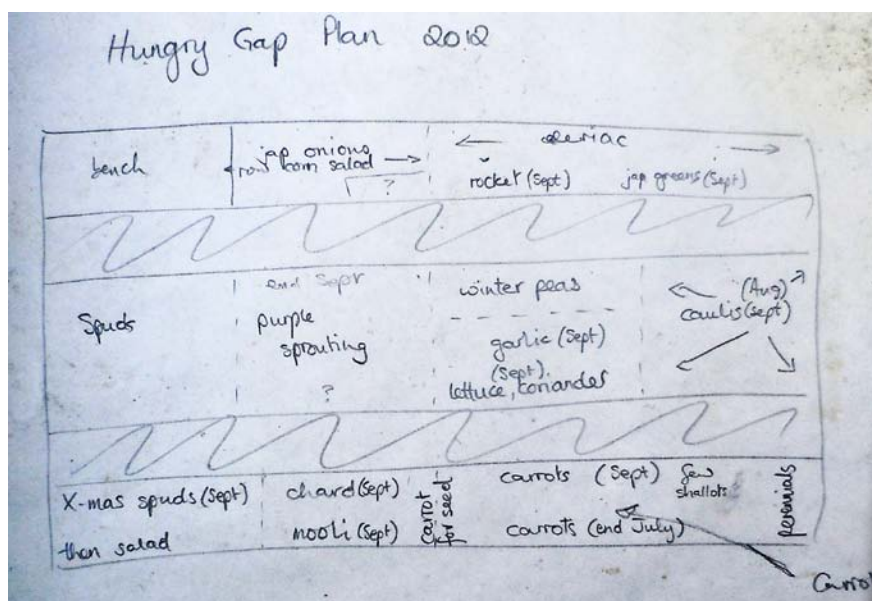 Hungry Gap Plan 2012
bench
jap onions
row corn salad
?
celeriac
rocket (Sept)
jap greens (Sept)
Spuds
end Sept
purple
sprouting
?
winter peas
garlic (Sept)
(Sept).
lettuce, coriander
(Aug)
caulis (Sept)
X-mas spuds (Sept)
then salad
chard (Sept)
mooli (Sept)
carrot
for seed
carrots (Sept)
carrots (end July)
few
shallots
perennials
Carrot